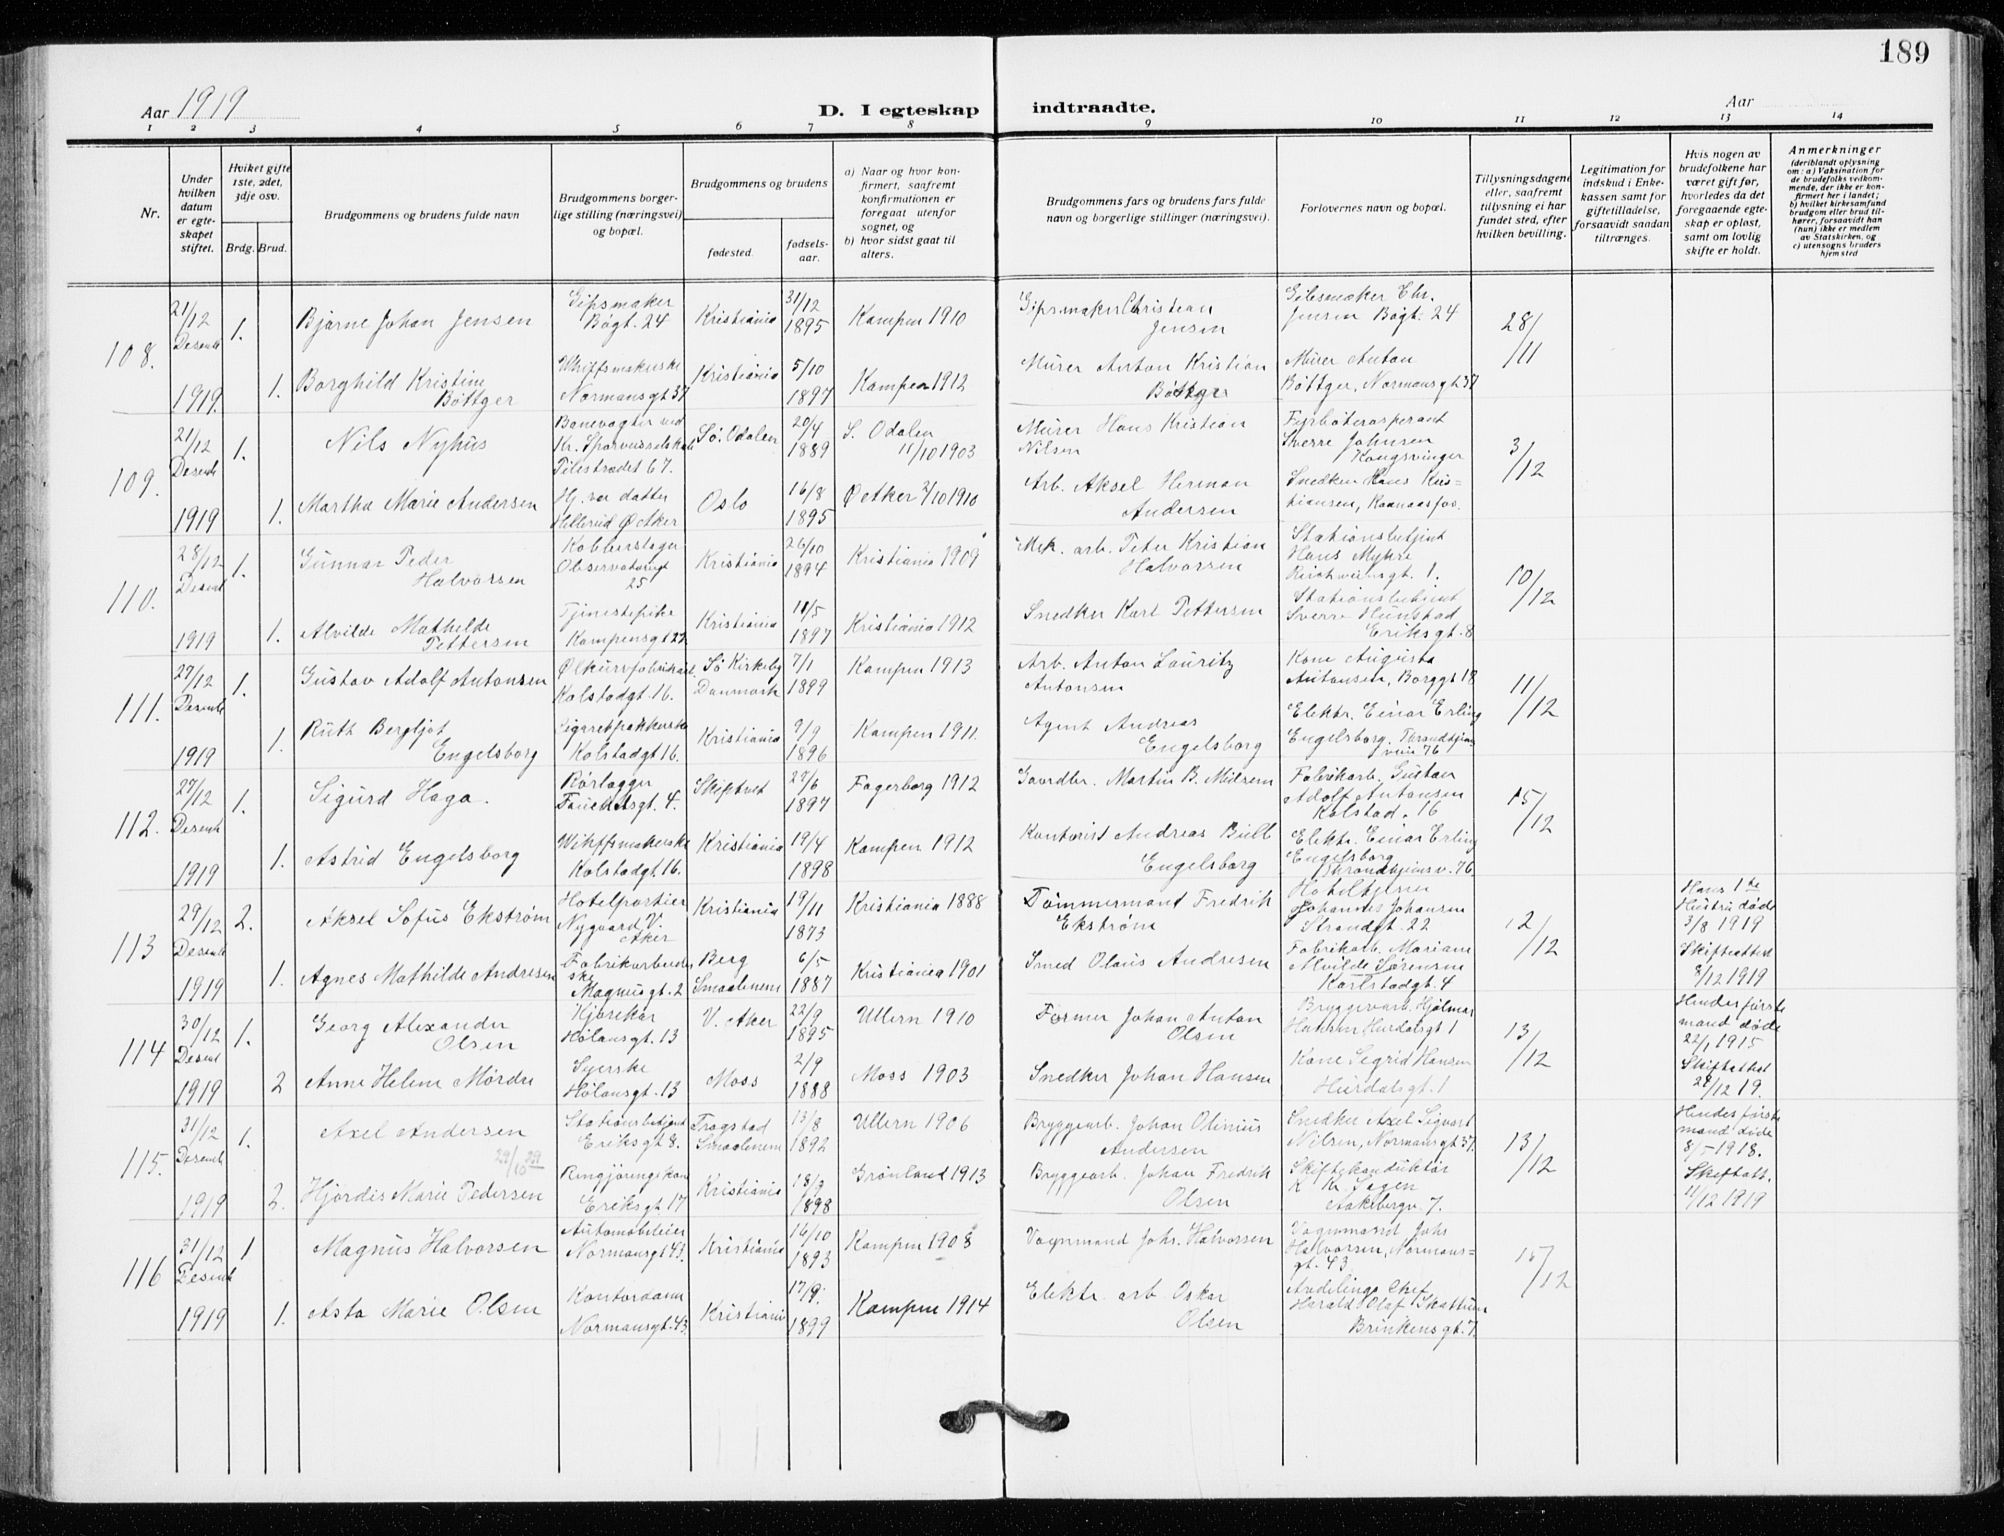 189
Aar 1919
D. I egteskap
indtraadte.
Aar
1 2 3 4 5 6 7 8 9 10 11 12 13 14
Nr.
Under hvilken datum er egteskapet stiftet.
Hviket gifte 1ste, 2det, 3dje osv.
Brdg. Brud.
Brudgommens og brudens fulde navn
Brudgommens borgerlige stilling (næringsvei) og bopæl.
Brudgommens og brudens
fødested.
fødselsaar.
a) Naar og hvor konfirmert, saafremt konfirmationen er foregaat utenfor sognet, og
b) hvor sidst gaat til alters.
Brudgommens fars og brudens fars fulde navn og borgerlige stillinger (næringsvei).
Forlovernes navn og bopæl.
Tillysningsdagene eller, saafremt tillysning ei har fundet sted, efter hvilken bevilling.
Legitimation for indskud i Enkekassen samt for giftetilladelse, forsaavidt saadan tiltrænges.
Hvis nogen av brudefolkene har været gift før, hvorledes da det foregaaende egteskap er opløst, samt om lovlig skifte er holdt.
Anmerkninger
(deriblandt oplysning om: a) Vaksination for de brudefolks vedkommende, der ikke er konfirmert her i landet; b) hvilket kirkesamfund brudgom eller brud tilhører, forsaavidt han (hun) ikke er medlem av Statskirken, og c) utensogns bruders hjemsted
108. 21/12 Desemb 1919
1. Bjarne Johan Jensen Gipsmaker Bøgt. 24 Kristiania 31/12 1895 Kampen 1910 Gipsmaker Christian Jensen Gibsmaker Chr. Jensen Bøgt. 24 28/11
1. Borghild Kristine Bøttger Normansgt 37 Kristiania 5/10 1897 Kampen 1912 Murer Anton Kristian Bøttger Murer Anton Bøttger, Normansgt 37
109. 21/12 Desemb 1919
1. Nils Nyhus Banevogter ved Kr. Sporveisselskab Pilestrædet 67. Sø. Odalen 20/4 1889 S. Odalen 11/10 1903 Murer Hans Kristian Nilsen Fyrbøteraspirant Sverre Johnsen Kongsvinger 3/12
1. Martha Marie Andersen Hj. vær. datter Hellerud Ø Aker Oslo 16/8 1895 Ø Aker 2/10 1910 Arb. Aksel Herman Andersen Snedker Hans Kristiansen, Raanaasfos.
110. 28/12 Desemb 1919
1. Gunnar Peder Halvorsen Kobberslager Observatorigt 25 Kristiania 26/10 1894 Kristiania 1909 Mek. arb. Peter Kristian Halvorsen Stationsbetjent Hans Myhre Reichweinsgt. 1. 10/12
1. Alvilde Mathilde Pettersen Tjenestepike Kampensgt 22 Kristiania 11/5 1897 Kristiania 1912 Snedker Karl Pettersen Stationsbetjent Sverre Hunstad Eriksgt. 8
111. 27/12 Desemb 1919
1. Gustav Adolf Antonsen Kolstadgt. 16. Sø Kirkeby Danmark 7/1 1899 Kampen 1913 Arb. Anton Lauritz Antonsen Kone Augusta Antonsen, Borggt 18 11/12
1. Ruth Bergljot Engelsborg Cigaretpakkerske Kolstadgt 16. Kristiania 9/9 1896 Kampen 1911. Agent Andreas Engelsborg Elektr. Einar Erling Engelsborg. Throndhjemsvein 76
112. 27/12 Desemb 1919
1. Sigurd Haga. Rørlægger Fauchaldsgt. 4. Skiptvet 27/6 1897 Fagerborg 1912 Gaardbr. Martin B. Fabrikarb. Gustav Adolf Antonsen Kolstad. 16 15/12
1. Astrid Engelsborg Kolstadgt. 16. Kristiania 19/4 1898 Kampen 1912 Kontorist Andreas Bull Engelsborg Elektr. Einar Erling Engelsborg Throndhjemsv. 76
113 29/12 Desemb 1919
2. Aksel Sofus Ekstrøm Hotelportier Nygaard V. Aker Kristiania 19/11 1873 Kristiania 1888 Tømmermand Fredrik Ekstrøm Johannes Johansen Strandgt. 22 12/12 Hans 1ste Hustru døde 3/8 1919
1. Agnes Mathilde Andresen Fabrikarbeiderske Magnusgt. 2 Berg Smaalenene 6/5 1887 Kristiania 1901 Smed Olaus Andresen Fabrikarb. Mariane Alvilde Sørensen Karlstadgt. 4 Skifteattest 8/12 1919
114 30/12 Desemb 1919
1. Georg Alexander Olsen Kjørekar Hølansgt. 13 V. Aker 22/9 1895 Ullern 1910 Former Johan Anton Olsen Bryggeriarb. Hjalmar Hansen Hurdalsgt 1 13/12 Hendes første mand døde 22/1 1915
2 Anne Helene Mørdre Syerske Hølansgt. 13 Moss 2/9 1888 Moss 1903 Snedker Johan Hansen Kone Sigrid Hansen Hurdalsgt. 1 Skifteattest 29/12 19.
115. 31/12 Desemb 1919
1. Axel Andersen Stationsbetjent Eriksgt 8. Trøgstad Smaalenene 13/8 1892 Ullern 1906 Bryggearb. Johan Olinius Andersen Snedker Axel Sigvart Nilsen, Normansgt 37. 13/12 Hendes første mand døde 8/5-1918.
29/10 29
2. Hjørdis Marie Pedersen Rengjøringskone Eriksgt 17 Kristiania 18/9 1898 Grønland 1913 Bryggearb. Johan Fredrik Olsen Skiftekonduktør K Kr. Sagen Aakebergv. 7. Skifteatt. 11/12 1919
116 31/12 Desemb 1919
1 Magnus Halvorsen Automobileier Normansgt 43. Kristiania 16/10 1893 Kampen 1908 Vognmand Johs. Halvorsen Vognmand Johs Halvorsen, Normansgt. 43 15/12
1. Asta Marie Olsen Kontordame Normansgt. 43. Kristiania 17/9. 1899 Kampen 1914 Elektr. arb. Oskar Olsen Avdelings Chef Harald Olaf Skattum Brinkensgt. 7.